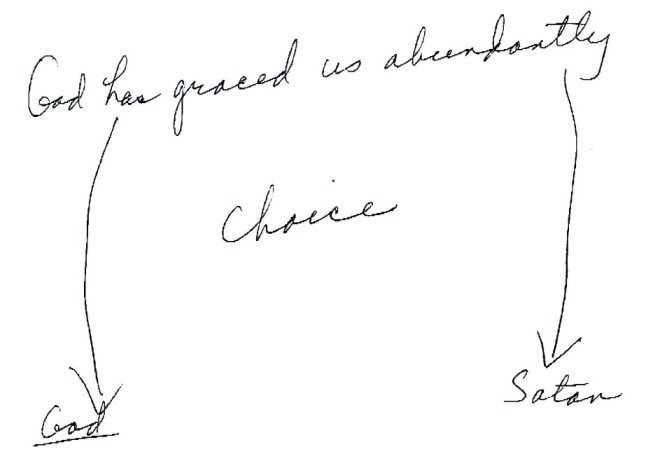 God has graced us abundantly
Choice
God
Satan